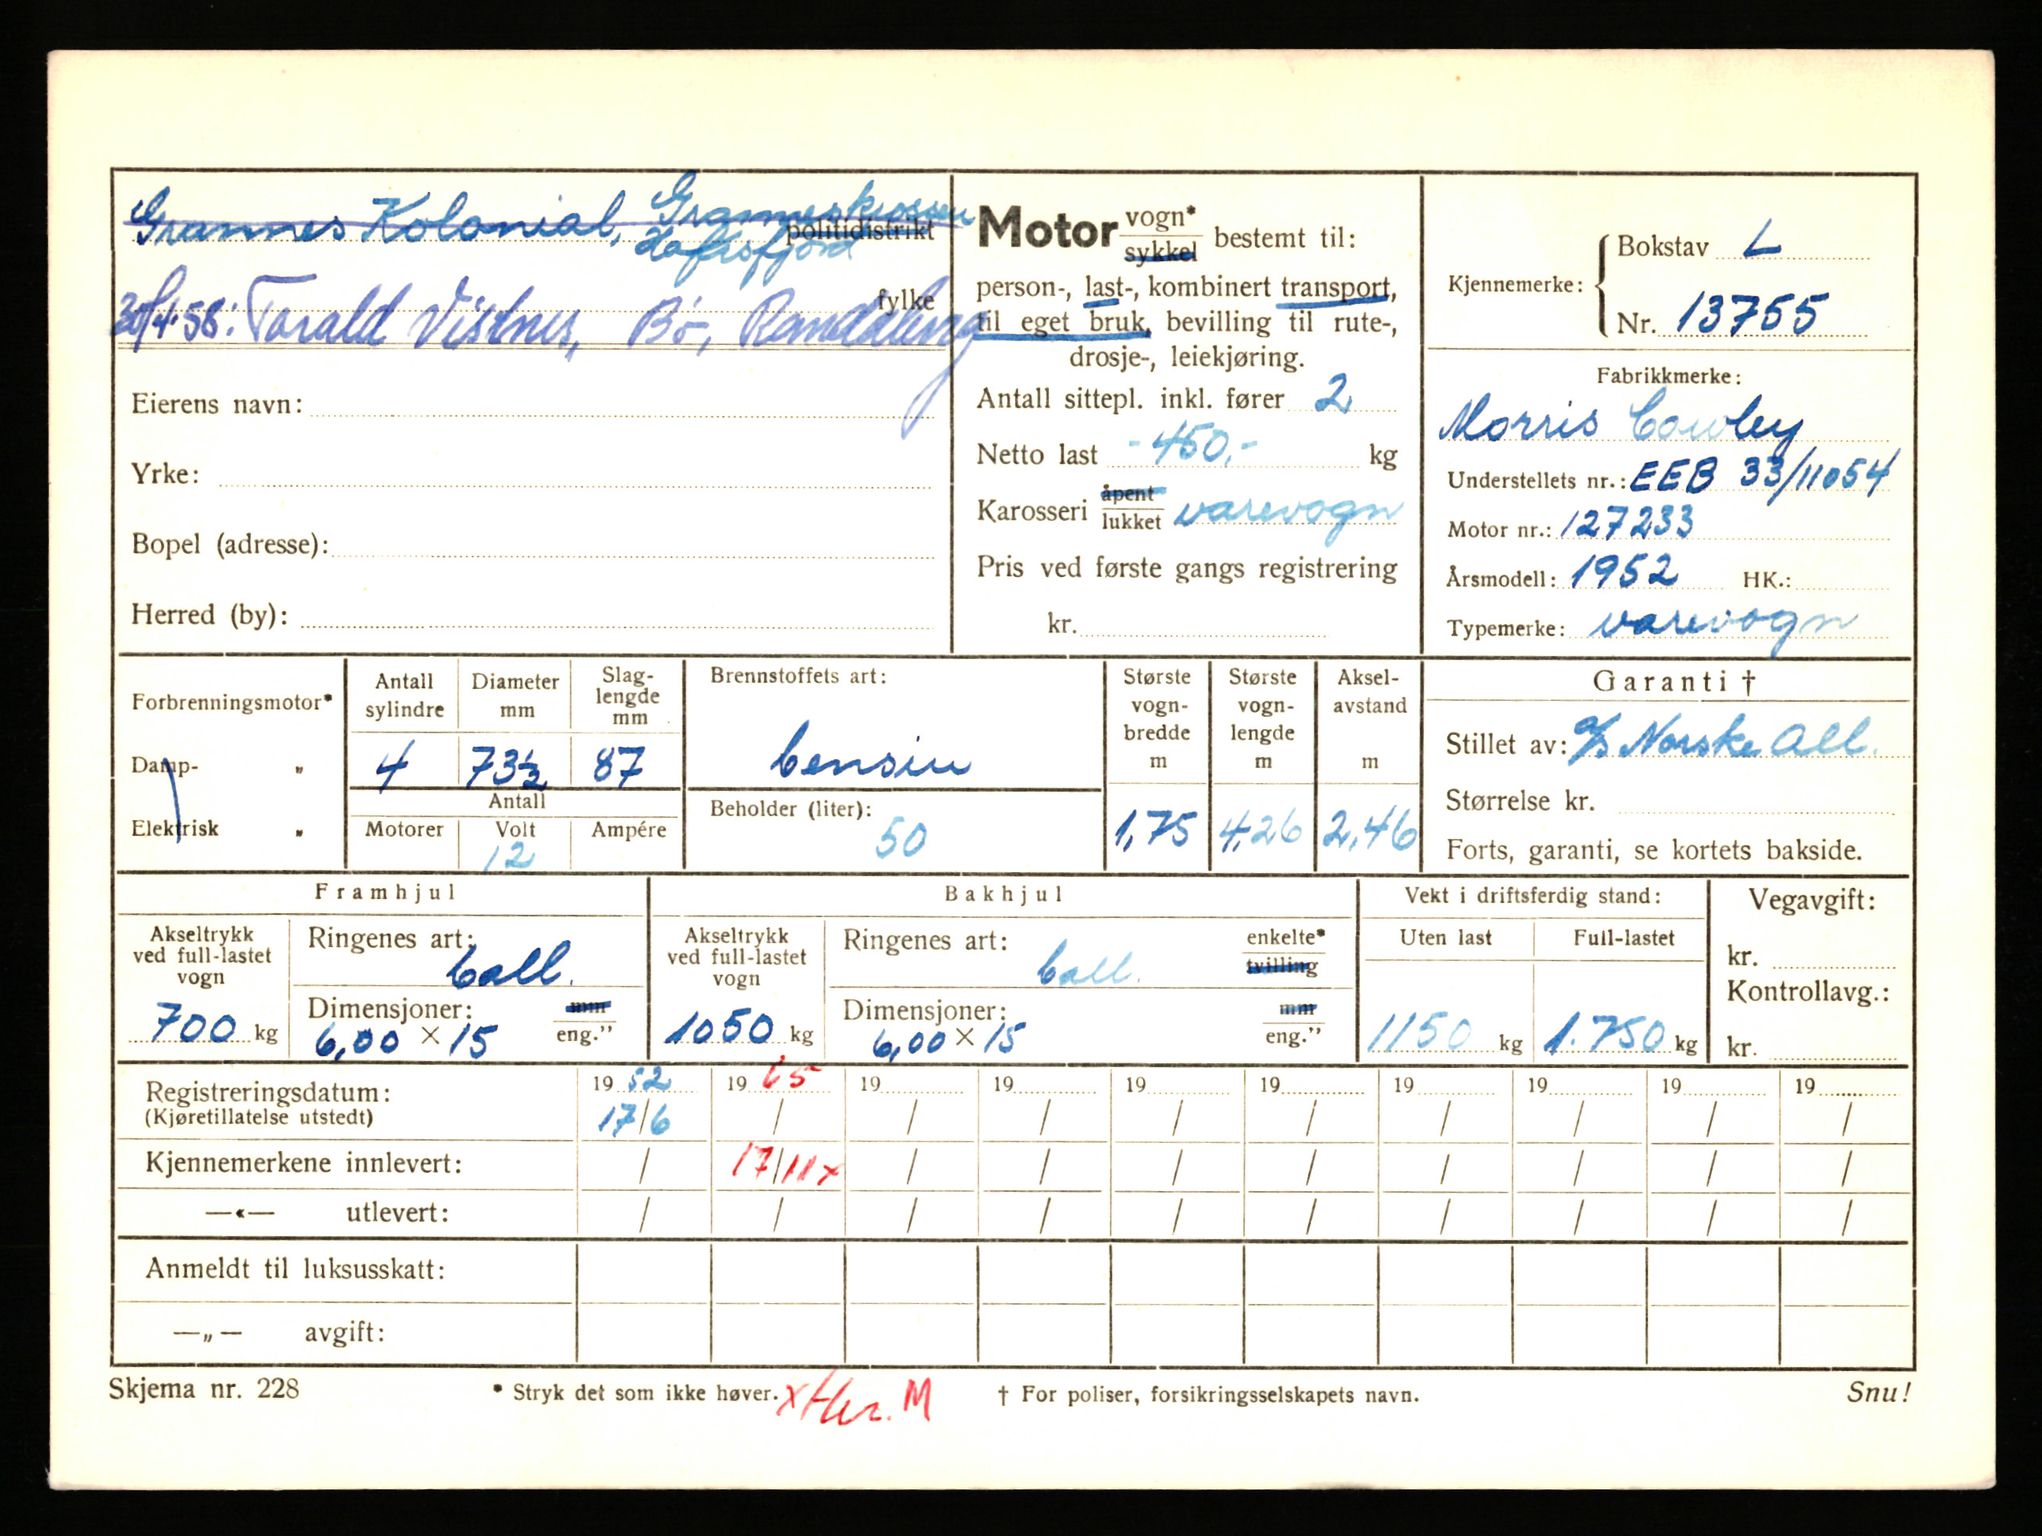 Grannes Kolonial, Granneskrossen
Hafrsfjord politidistrikt
fylke
30/4-58: Torald Vistnes, Bø, Randaberg
Eierens navn:
Yrke:
Bopel (adresse):
Herred (by):
Motor vogn* sykkel bestemt til:
person-, last-, kombinert transport,
til eget bruk, bevilling til rute-,
drosje-, leiekjøring.
Antall sittepl. inkl. fører 2
Netto last -450,- kg
Karosseri åpent lukket varevogn
Pris ved første gangs registrering
kr.
Kjennemerke: Bokstav L
Nr. 13755
Fabrikkmerke:
Morris Cowley
Understellets nr.: EEB 33/11054
Motor nr.: 127233
Årsmodell: 1952 HK.:
Typemerke: varevogn
Forbrenningsmotor*
Damp- „
Elektrisk „
Antall sylindre
4
Diameter mm
73½
Slag-lengde mm
87
Antall
Motorer
Volt
12
Ampére
Brennstoffets art:
bensin
Beholder (liter):
50
Største vogn-bredde m
1,75
Største vogn-lengde m
4,26
Aksel-avstand m
2,46
Garanti †
Stillet av: A/S Norske All.
Størrelse kr.
Forts, garanti, se kortets bakside.
Framhjul
Akseltrykk ved full-lastet vogn
700 kg
Ringenes art:
ball.
Dimensjoner: mm
6,00 × 15 eng.”
Bakhjul
Akseltrykk ved full-lastet vogn
1050 kg
Ringenes art: enkelte*
ball. tvilling
Dimensjoner: mm
6,00 × 15 eng.”
Vekt i driftsferdig stand:
Uten last
1150 kg
Full-lastet
1.750 kg
Vegavgift:
kr.
Kontrollavg.:
kr.
Registreringsdatum: 19 52 19 65 19 19 19 19 19 19 19 19
(Kjøretillatelse utstedt) 17/6 / / / / / / / / /
Kjennemerkene innlevert: / 17/11x / / / / / / / /
—«— utlevert: / / / / / / / / / /
Anmeldt til luksusskatt:
—„— avgift:
Skjema nr. 228
* Stryk det som ikke høver.
x Her. M
† For poliser, forsikringsselskapets navn.
Snu!